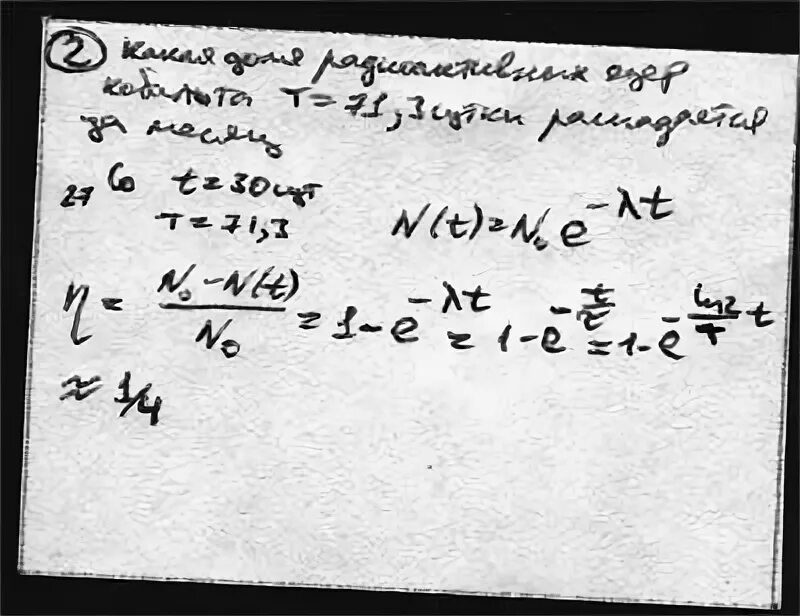 ② Какая доля радиоактивных ядер
кобальта T = 71,3 сутки распадается
за месяц
₂₇Co t = 30 сут
T = 71,3
N(t) = N₀ e^(-λt)
η = (N₀ - N(t))/N₀ = 1 - e^(-λt) = 1 - e^(-t/τ) = 1 - e^(-(ln2/T) t)
≈ 1/4